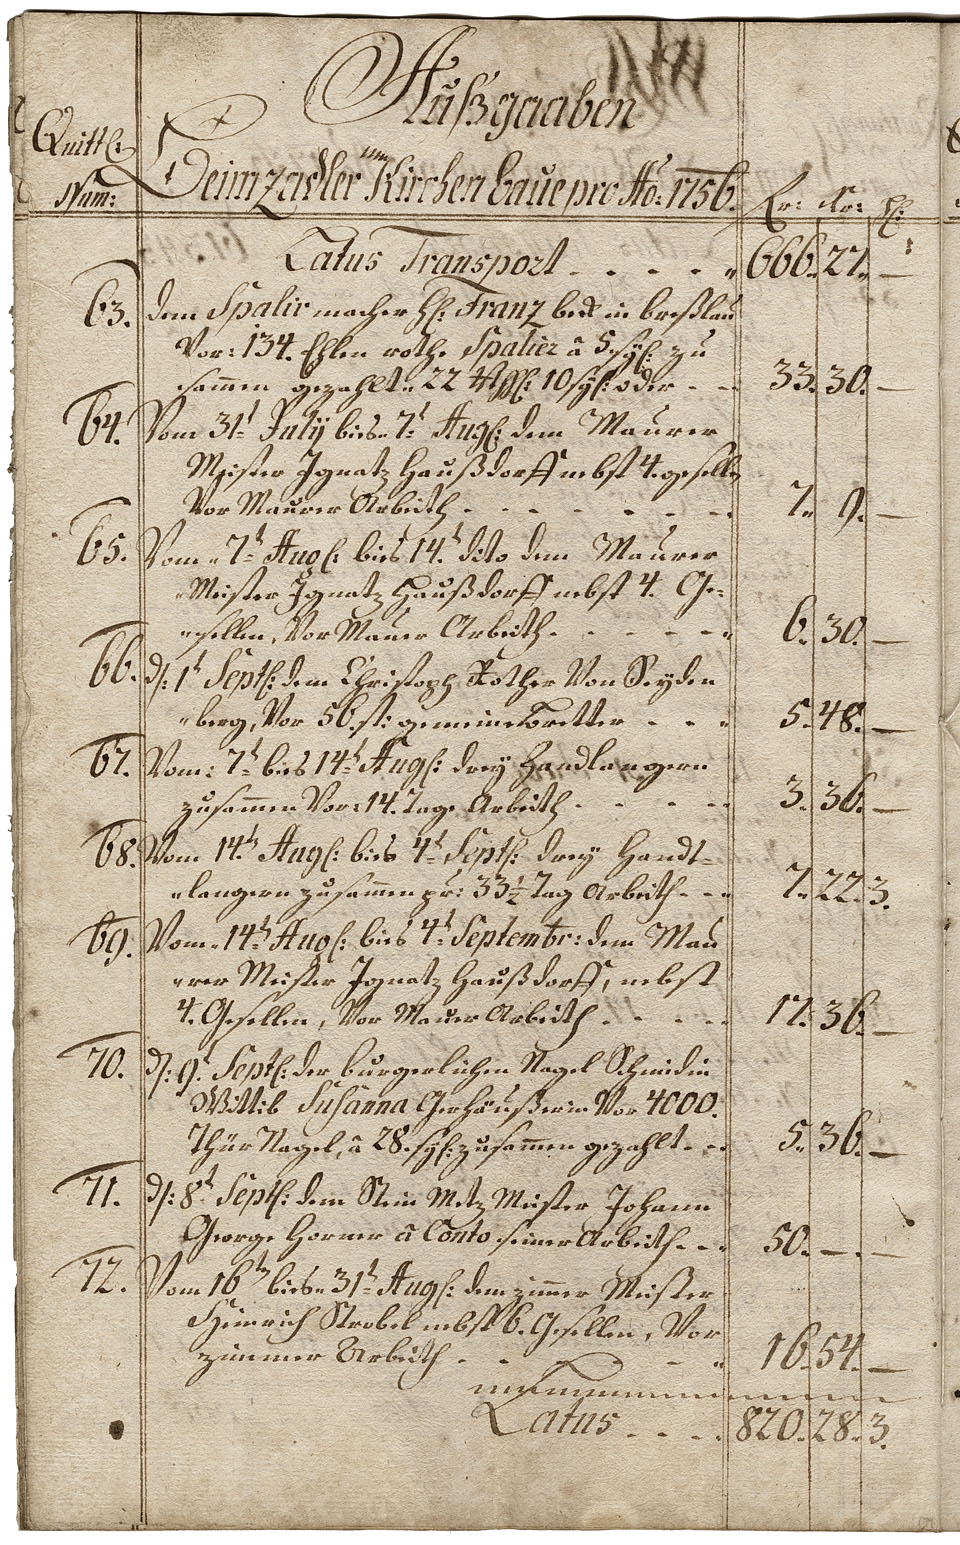 Außgaaben
Quittl:
Num:
Kirchen baue pro Aõ: 1756.
Kr:
Latus Transport - - - - - " 666. 27. —
63. dem Spalir macher H: Franz beck in Breßlau
Vor: 134. Ehlen rothe Spalier â 5. sgl: zu
sammen gezahlt 22 10 sgl: oder - - 33. 30. —
64. Vom 31t July bis 7t Aug: dem Maurer
Meister Ignatz Haußdorff nebst 4. gesellen
Vor Maurer Arbeith - - - - - - - 7. 9. —
65. Vom 7t Aug: bis 14t dito dem Maurer
Meister Ignatz Haußdorff nebst 4. Ge-
sellen, Vor Mauer Arbeith - - - - - " 6. 30. —
66. d: 1t Sept: dem Christoph Rother Von Seyden
berg, Vor 56. st: gemeine Bretter - - " 5. 48. —
67. Vom: 7t bis 14t Aug: drey Handlangern
zusammen Vor: 14. Tage Arbeith - - - - 3. 36. —
68. Vom 14t Aug: bis 4t Sept: drey Handt-
langern zusammen pr: 33½ Tag Arbeith - - " 7. 22. 3.
69. Vom 14t Aug: bis 4t Septembr: dem Mau
rer Meister Ignatz Haußdorff, nebst
4. Gesellen, Vor Mauer Arbeith - - - - - 17. 36. —
70. d: 9t Sept: der burgerlichen Nagel Schmidin
Wittib Susanna Vor 4000.
Thür Nagel, â 28. sgl: zusammen gezahlt - - 5. 36. —
71. d: 8t Sept: dem Stein Metz Meister Johann
George Horner â Conto seiner Arbeith - - - 50. — —
72. Vom 16t bis 31t Aug: dem zimmer Meister
Heinrich Strobel nebst 6. Gesellen, Vor
zimmer Arbeith - - - - " 16. 54. —
Latus - - - - 820. 28. 3.